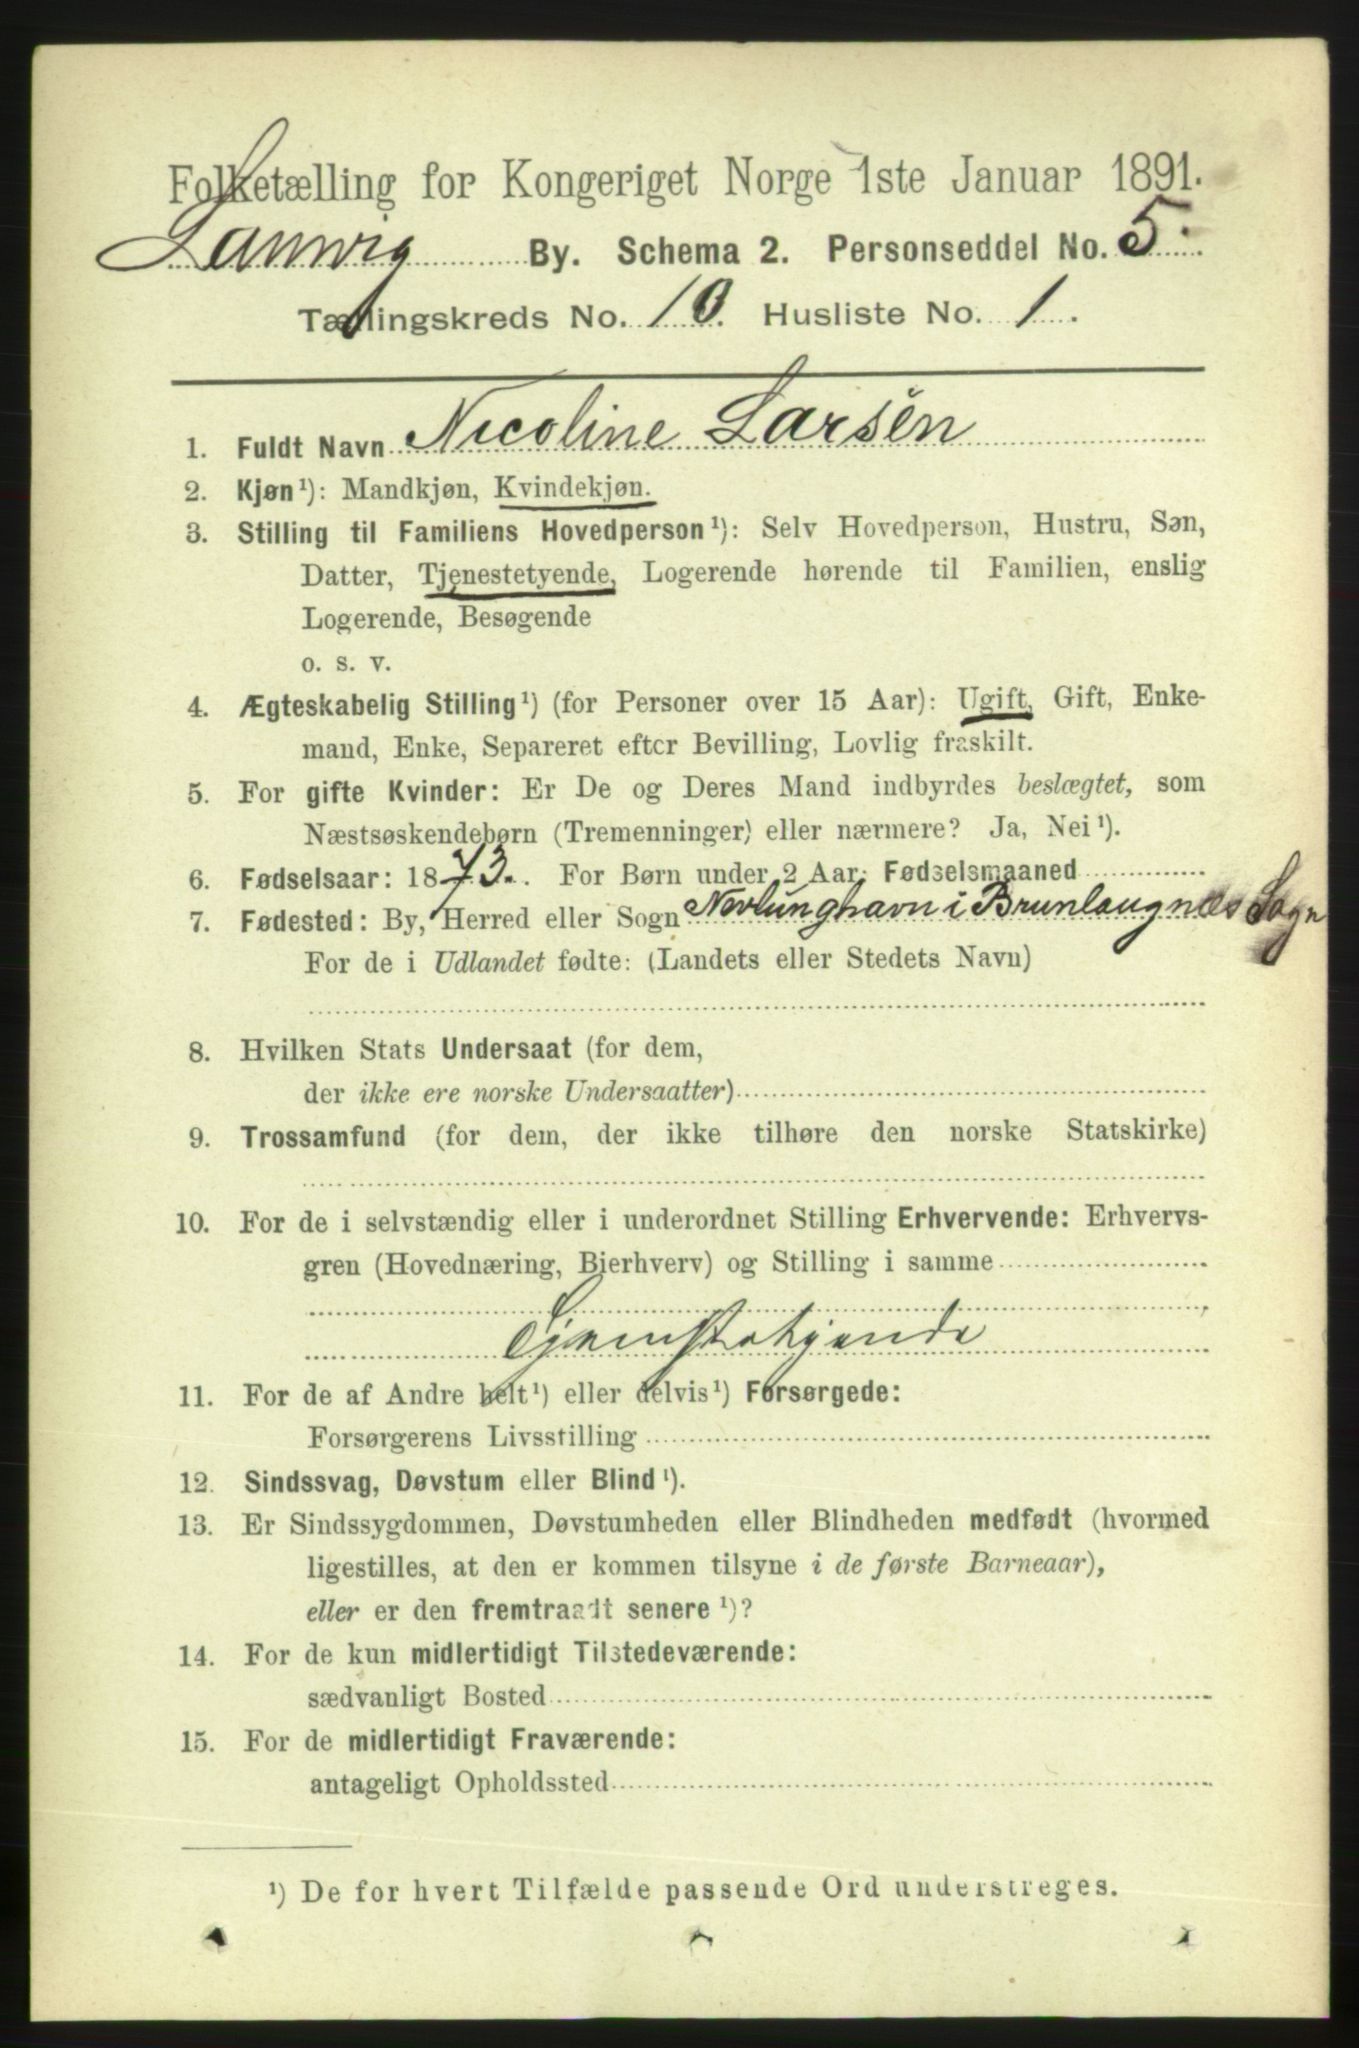 Folketælling for Kongeriget Norge 1ste Januar 1891.
Laurvig By. Schema 2. Personseddel No. 5.
Tællingskreds No. 10. Husliste No. 1.
1. Fuldt Navn Nicoline Larsen
2. Kjøn¹): Mandkjøn, Kvindekjøn.
3. Stilling til Familiens Hovedperson¹): Selv Hovedperson, Hustru, Søn,
Datter, Tjenestetyende, Logerende hørende til Familien, enslig
Logerende, Besøgende
o. s. v.
4. Ægteskabelig Stilling¹) (for Personer over 15 Aar): Ugift, Gift, Enke-
mand, Enke, Separeret efter Bevilling, Lovlig fraskilt.
5. For gifte Kvinder: Er De og Deres Mand indbyrdes beslægtet, som
Næstsøskendebørn (Tremenninger) eller nærmere? Ja, Nei¹).
6. Fødselsaar: 1873. For Børn under 2 Aar: Fødselsmaaned
7. Fødested: By, Herred eller Sogn Nevlunghavn i Brunlaugnæs Sogn
For de i Udlandet fødte: (Landets eller Stedets Navn)
8. Hvilken Stats Undersaat (for dem,
der ikke ere norske Undersaatter)
9. Trossamfund (for dem, der ikke tilhøre den norske Statskirke)
10. For de i selvstændig eller i underordnet Stilling Erhvervende: Erhvervs-
gren (Hovednæring, Bierhverv) og Stilling i samme
Tjenestetyende
11. For de af Andre helt¹) eller delvis¹) Forsørgede:
Forsørgerens Livsstilling
12. Sindssvag, Døvstum eller Blind¹).
13. Er Sindssygdommen, Døvstumheden eller Blindheden medfødt (hvormed
ligestilles, at den er kommen tilsyne i de første Barneaar),
eller er den fremtraadt senere¹)?
14. For de kun midlertidigt Tilstedeværende:
sædvanligt Bosted
15. For de midlertidigt Fraværende:
antageligt Opholdssted
¹) De for hvert Tilfælde passende Ord understreges.